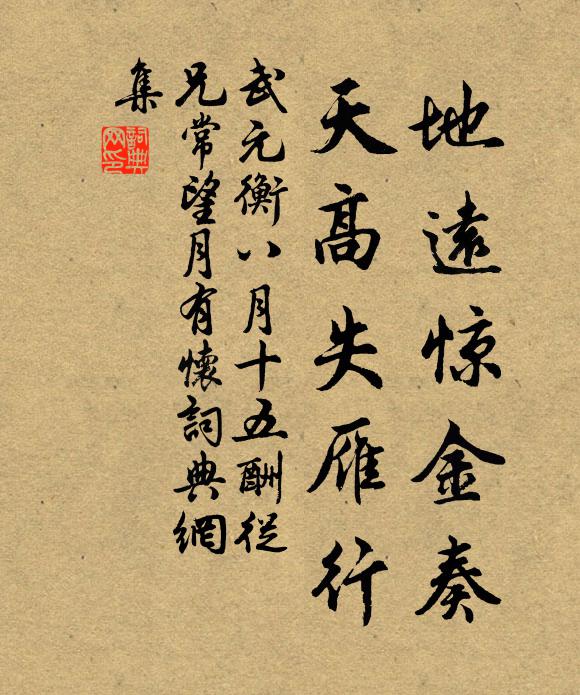 地遠惊金奏
天高失雁行
武元衡八月十五酬從
兄常望月有懷詞典網
集
詞典網印